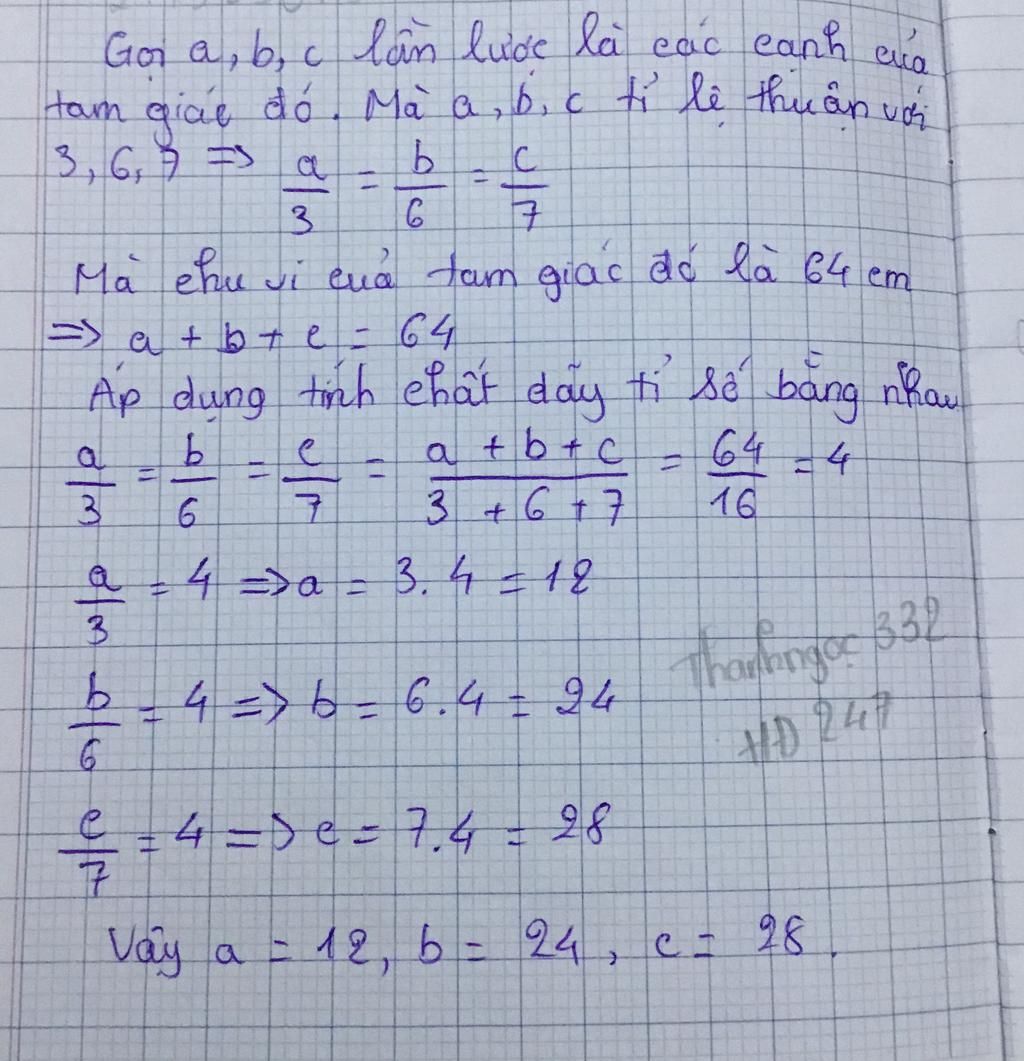 Gọi a, b, c lần lược là các cạnh của
tam giác đó. Mà a, b, c tỉ lệ thuận với
3, 6, 7 => a/3 = b/6 = c/7
Mà chu vi của tam giác đó là 64 cm
=> a + b + c = 64
Áp dụng tính chất dãy tỉ số bằng nhau
a/3 = b/6 = c/7 = (a + b + c)/(3 + 6 + 7) = 64/16 = 4
a/3 = 4 => a = 3.4 = 12
b/6 = 4 => b = 6.4 = 24
c/7 = 4 => c = 7.4 = 28
Vậy a = 12, b = 24, c = 28.
Thanhngọc 332
HD 247